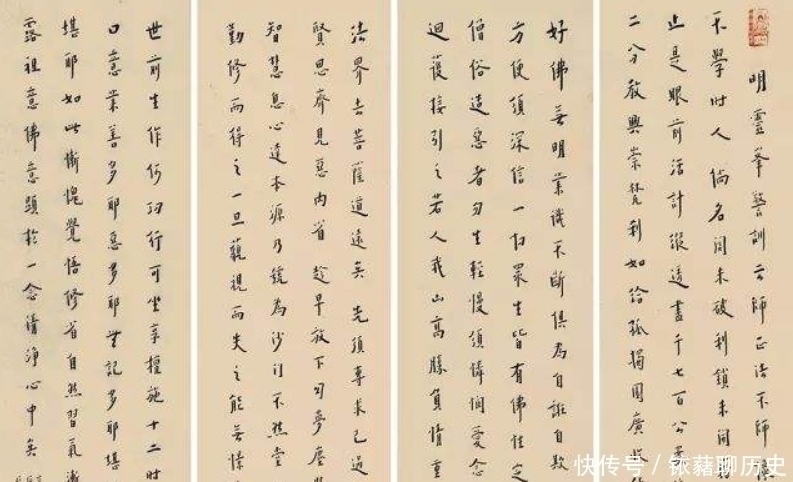 明靈峯警訓云師正法不師
不學時人倘名關未破利鎖未開
止是眼前活計縱透盡千七百公
二分教興崇梵剎如給孤獨園廣
好佛無明業識不斷俱為自誑自欺
方便須深信一切眾生皆有佛性定
僧俗造惡者勿生輕慢須憐憫愛念
迴護接引之若人我山高勝負情重
法界去菩薩道遠矣先須專求己過
賢思齊見惡內省趁早放下勿夢塵
智慧息心達本源乃號為沙門不然堂
勤修而得之一旦藐視而失之能無
世前生作何功行可坐享檀施十二時
口意業善多耶惡多耶無記多耶堪
堪耶如此慚愧覺悟修省自然習氣漸
露祖意佛意顯於一念清淨心中矣
快传号 / 铱藉聊历史